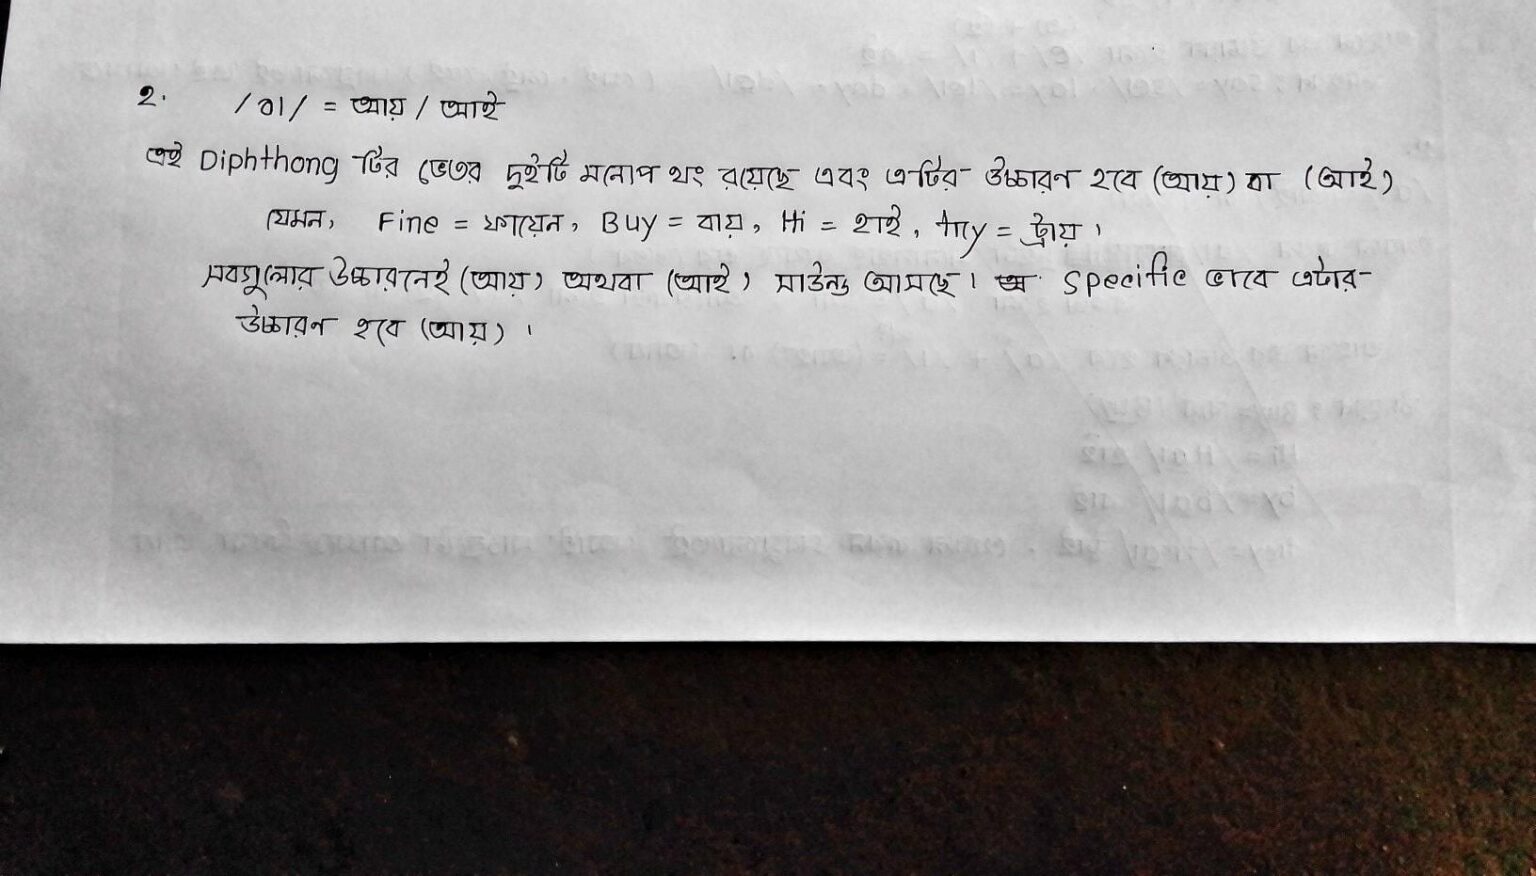 2. /aI/ = আয় / আই
এই Diphthong টির ভেতর দুইটি মনোপ থং রয়েছে এবং এটির উচ্চারণ হবে (আয়) বা (আই)
যেমন, Fine = ফায়েন, Buy = বায়, Hi = হাই, Try = ট্রায়।
সবগুলোর উচ্চারনেই (আয়) অথবা (আই) সাউন্ড আসছে। Specific ভাবে এটার
উচ্চারণ হবে (আয়) ।